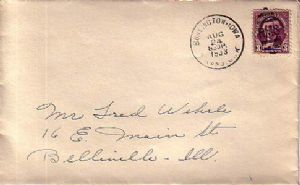 BURLINGTON, IOWA
AUG
24
1933
Mr Fred Wehrle
16 E. Main St
Belleville - Ill.